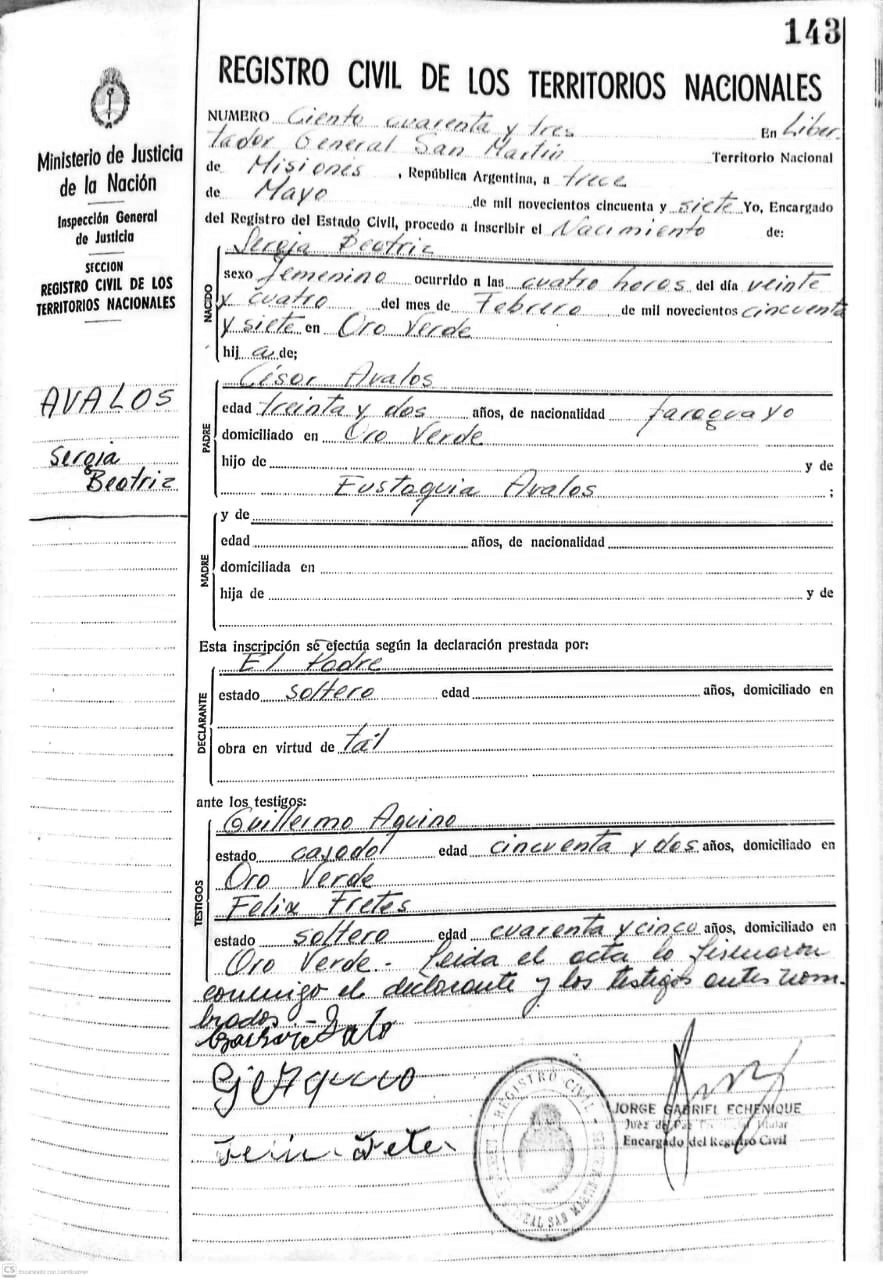 143
REGISTRO CIVIL DE LOS TERRITORIOS NACIONALES
Ministerio de Justicia
de la Nación
Inspección General
de Justicia
SECCION
REGISTRO CIVIL DE LOS
TERRITORIOS NACIONALES
AVALOS
Sergia
Beatriz
NUMERO Ciento cuarenta y tres En Liber-
tador General San Martín Territorio Nacional
de Misiones, República Argentina, a trece
de Mayo de mil novecientos cincuenta y siete Yo, Encargado
del Registro del Estado Civil, procedo a inscribir el Nacimiento de:
NACIDO
Sergia Beatriz
sexo femenino ocurrido a las cuatro horas del día veinte
y cuatro del mes de Febrero de mil novecientos cincuenta
y siete en Oro Verde
hija de;
PADRE
César Avalos
edad treinta y dos años, de nacionalidad Paraguayo
domiciliado en Oro Verde
hijo de y de
Eustaquia Avalos ;
MADRE
y de
edad años, de nacionalidad
domiciliada en
hija de y de
Esta inscripción se efectúa según la declaración prestada por:
DECLARANTE
El Padre
estado soltero edad años, domiciliado en
obra en virtud de tal
ante los testigos:
TESTIGOS
Guillermo Aquino
estado casado edad cincuenta y dos años, domiciliado en
Oro Verde
Felix Fretes
estado soltero edad cuarenta y cinco años, domiciliado en
Oro Verde - Leida el acta la firmaron
conmigo el declarante y los testigos antes nom-
brados.-
REGISTRO CIVIL
JORGE GABRIEL ECHENIQUE
Juez de Paz Titular
Encargado del Registro Civil
CS Escaneado con CamScanner